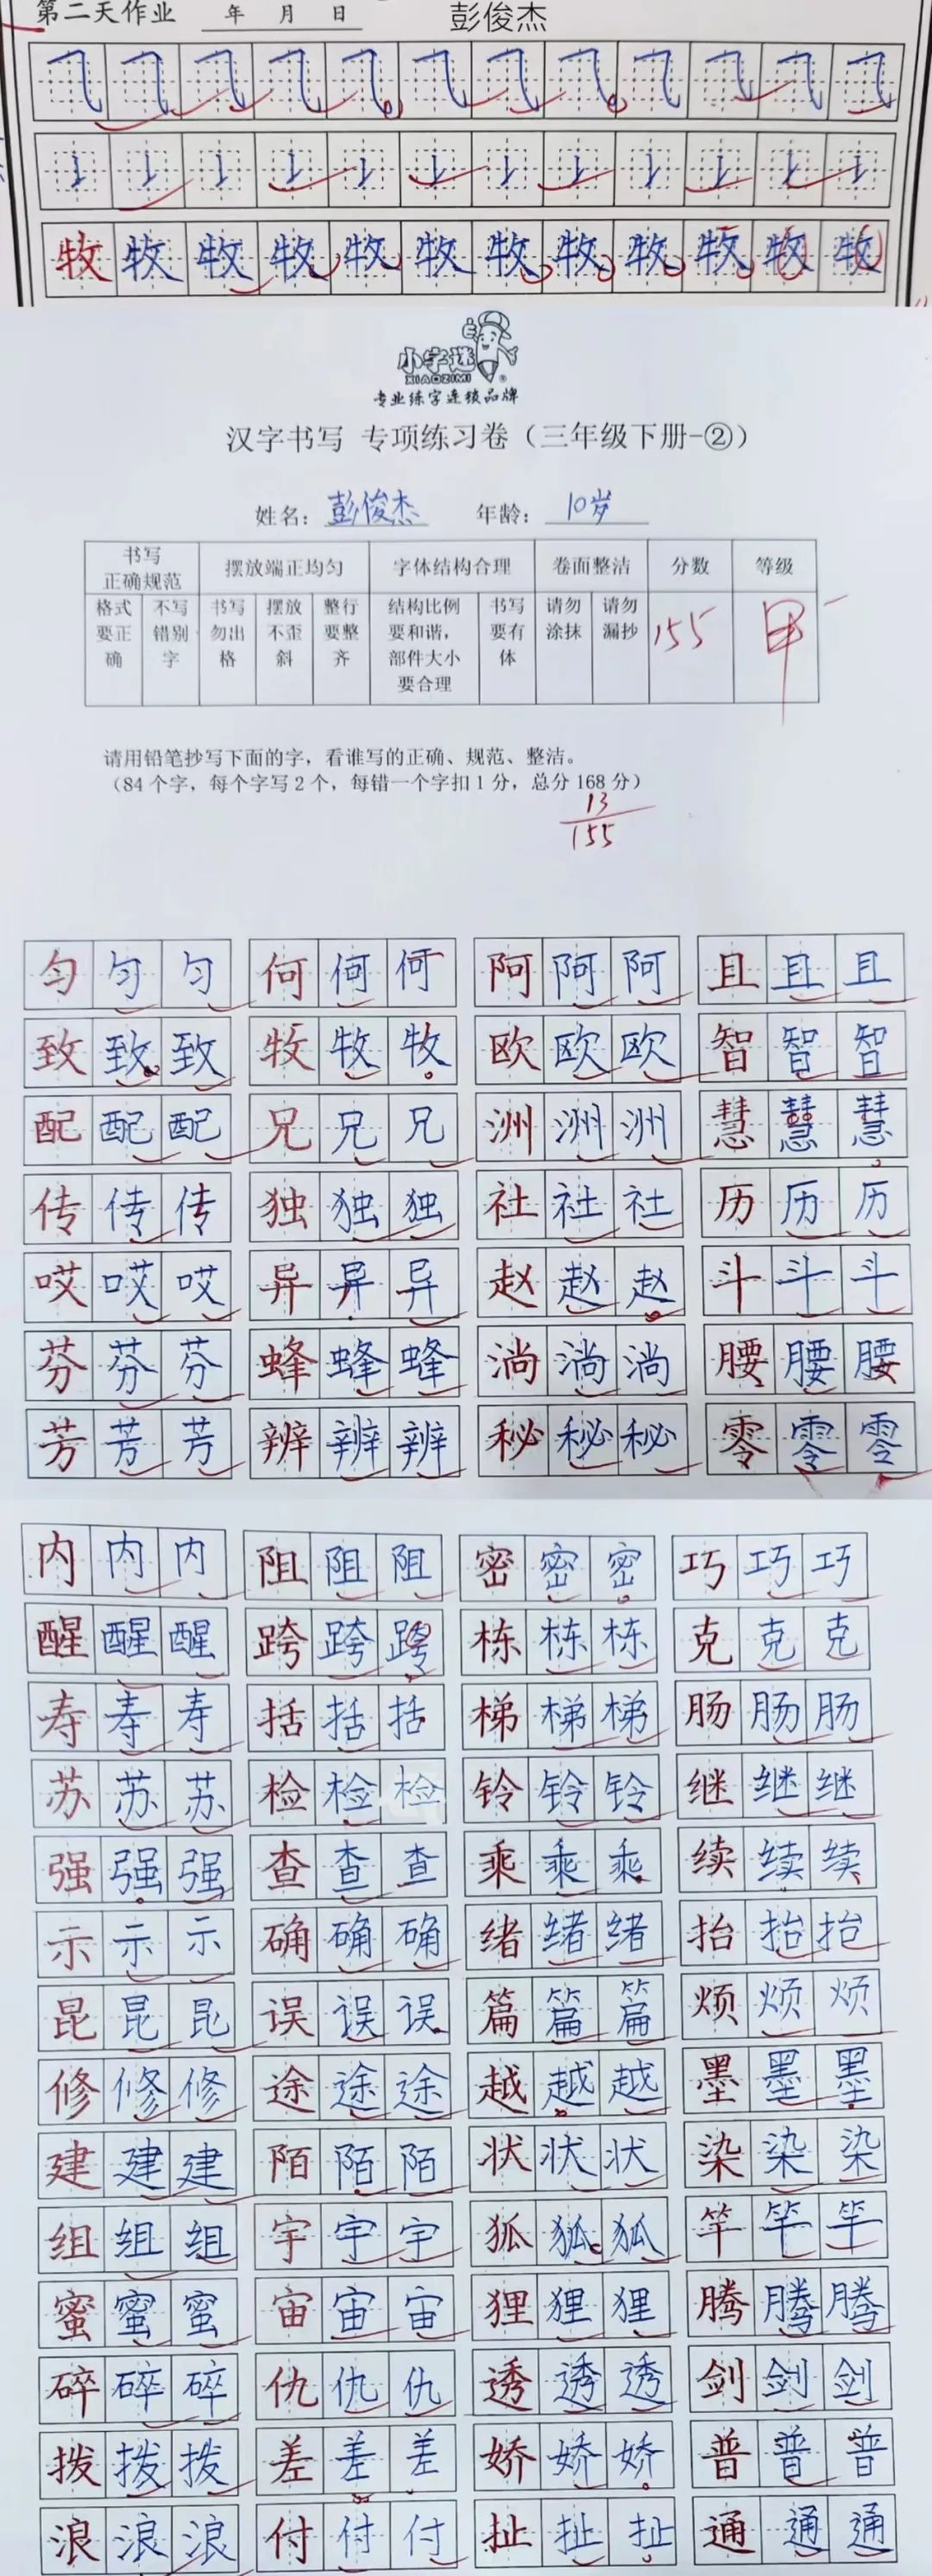 第二天作业 年 月 日 彭俊杰
牧 牧 牧 牧 牧 牧 牧 牧 牧 牧 牧 牧
小字迷
XIAOZIMI
专业练字连锁品牌
汉字书写 专项练习卷（三年级下册-②）
姓名：彭俊杰 年龄：10岁
书写正确规范 摆放端正均匀 字体结构合理 卷面整洁 分数 等级
格式要正确 不写错别字 书写勿出格 摆放不歪斜 整行要整齐 结构比例要和谐，部件大小要合理 书写要有体 请勿涂抹 请勿漏抄 155 甲-
请用铅笔抄写下面的字，看谁写的正确、规范、整洁。
（84个字，每个字写2个，每错一个字扣1分，总分168分）
13
155
匀 匀 匀 何 何 何 阿 阿 阿 且 且 且
致 致 致 牧 牧 牧 欧 欧 欧 智 智 智
配 配 配 兄 兄 兄 洲 洲 洲 慧 慧 慧
传 传 传 独 独 独 社 社 社 历 历 历
哎 哎 哎 异 异 异 赵 赵 赵 斗 斗 斗
芬 芬 芬 蜂 蜂 蜂 淌 淌 淌 腰 腰 腰
芳 芳 芳 辨 辨 辨 秘 秘 秘 零 零 零
内 内 内 阻 阻 阻 密 密 密 巧 巧 巧
醒 醒 醒 跨 跨 跨 栋 栋 栋 克 克 克
寿 寿 寿 括 括 括 梯 梯 梯 肠 肠 肠
苏 苏 苏 检 检 检 铃 铃 铃 继 继 继
强 强 强 查 查 查 乘 乘 乘 续 续 续
示 示 示 确 确 确 绪 绪 绪 抬 抬 抬
昆 昆 昆 误 误 误 篇 篇 篇 烦 烦 烦
修 修 修 途 途 途 越 越 越 墨 墨 墨
建 建 建 陌 陌 陌 状 状 状 染 染 染
组 组 组 宇 宇 宇 狐 狐 狐 竿 竿 竿
蜜 蜜 蜜 宙 宙 宙 狸 狸 狸 腾 腾 腾
碎 碎 碎 仇 仇 仇 透 透 透 剑 剑 剑
拨 拨 拨 差 差 差 娇 娇 娇 普 普 普
浪 浪 浪 付 付 付 扯 扯 扯 通 通 通